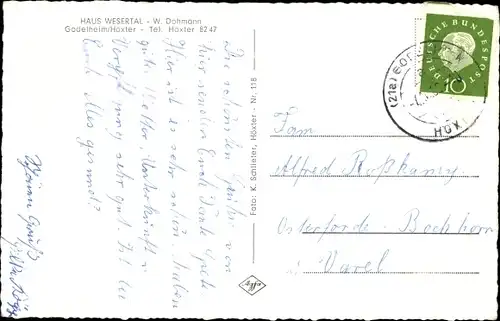 HAUS WESERTAL - W. Dohmann
Godelheim/Höxter - Tel. Höxter 8247
Die schönsten Grüße von
hier sendet Euch Tante Grete
Hier ist es sehr schön. Haben
gutes Wetter, Unterkunft u.
Verpfl. sehr gut. Ist bei
Euch alles gesund?
Foto: K. Schlieter, Höxter - Nr. 118
Agfa
DEUTSCHE BUNDESPOST
10
(21a)
HÖX
Fam
Alfred Roßkamp
Osterforde - Bockhorn
Varel